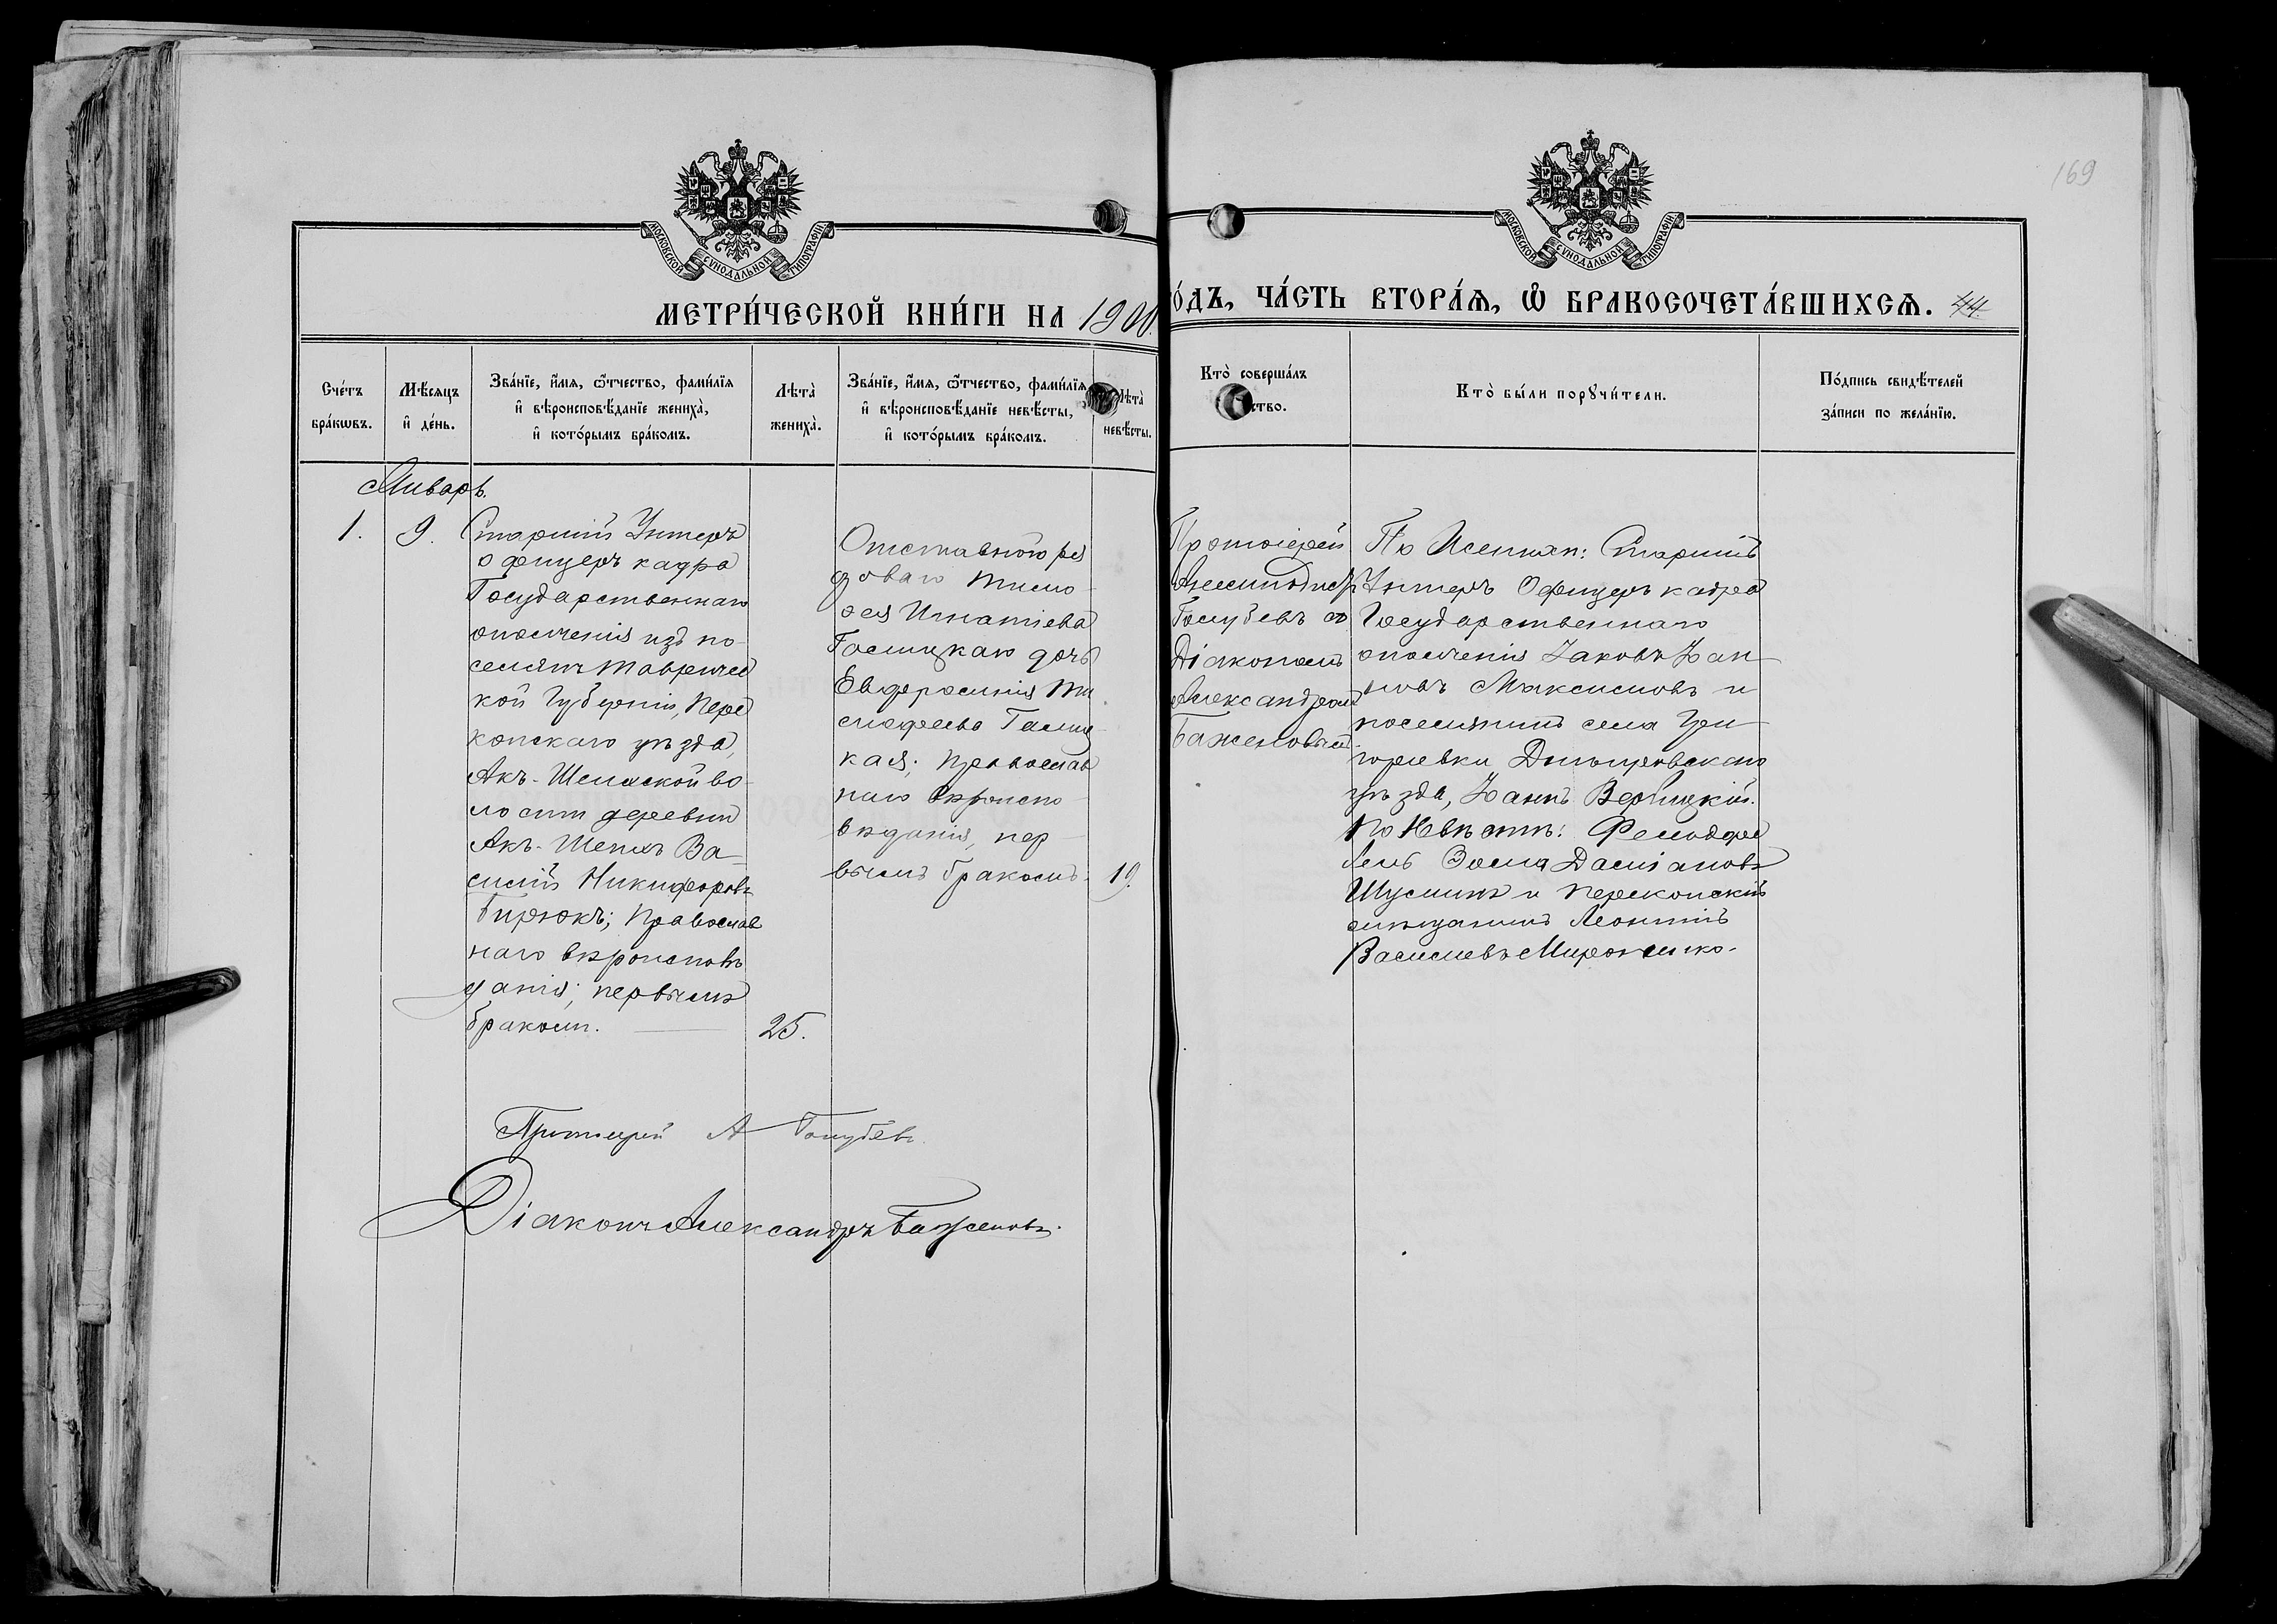 169
МОСКОВСКОЙ СѴНОДАЛЬНОЙ ТИПОГРАФІИ
МОСКОВСКОЙ СѴНОДАЛЬНОЙ ТИПОГРАФІИ
МЕТРИ́ЧЕСКОЙ КНИ́ГИ НА 1900.
О́ДЪ, ЧА́СТЬ ВТОРА́Ѧ, Ѡ҆ БРАКОСОЧЕТА́ВШИХСѦ. 44.
Сче́тъ бра́кѡвъ.
Мѣ́сѧцъ и҆ де́нь.
Зва́нїе, и҆́мѧ, ѻ҆́тчество, фами́лїѧ
и҆ вѣроисповѣ́данїе жениха̀,
и҆ кото́рымъ бра́комъ.
Лѣта̀ жениха̀.
Зва́нїе, и҆́мѧ, ѻ҆́тчество, фами́лїѧ
и҆ вѣроисповѣ́данїе невѣ́сты,
и҆ кото́рымъ бра́комъ.
Лѣта̀ невѣ́сты.
Кто̀ соверша́лъ
ство.
Кто̀ бы́ли порꙋчи́тели.
По́дпись свидѣ́телей
за́писи по жела́нїю.
Январь.
1.
9.
Старшій Унтеръ
офицеръ кадра
Государственнаго
ополченія изъ по-
селянъ Тавричес
кой Губерніи, Пере
копскаго уѣзда,
Акъ-Шеихской во-
лости деревни
Акъ-Шеихъ Ва-
силій Никифоровъ
Бирюкъ; православ
наго вѣроисповѣ
данія; первымъ
бракомъ.
25.
Отставного ря
дового Тимо-
фея Игнатіева
Галицкаго дочь
Евфросинія Ти
мофеева Галиц-
кая; православ
наго вѣроиспо-
вѣданія, пер-
вымъ бракомъ.
19.
Протоіерей
Голубевъ съ
Діакономъ
Александромъ
Баженовымъ
По Женихѣ: Старшій
Унтеръ Офицеръ кадра
Государственнаго
ополченія Іаковъ Іоан-
новъ Максимовъ и
поселянинъ села Гри-
горьевки Днѣпровскаго
уѣзда, Іоаннъ Вербицкій.
По Невѣстѣ: Фельдфе
бель Зосима Даміановъ
Шуминъ и Перекопскій
мѣщанинъ Леонтій
Васильевъ Мироненко.
Протоіерей А Голубевъ
Діаконъ Александръ Баженовъ.